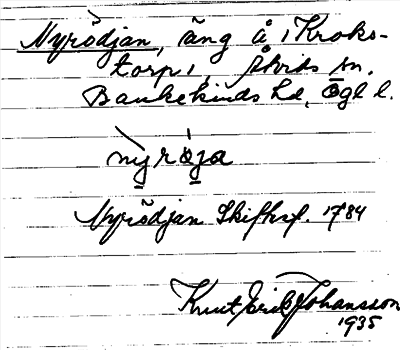 Nyrödjan, äng å 1 Kroks-
torp 1, Åtvids sn.
Bankekinds hd, Ögl l.
nỳrǿja
Nyrödjan Skifksf. 1784
Knut Erik Johansson
1935